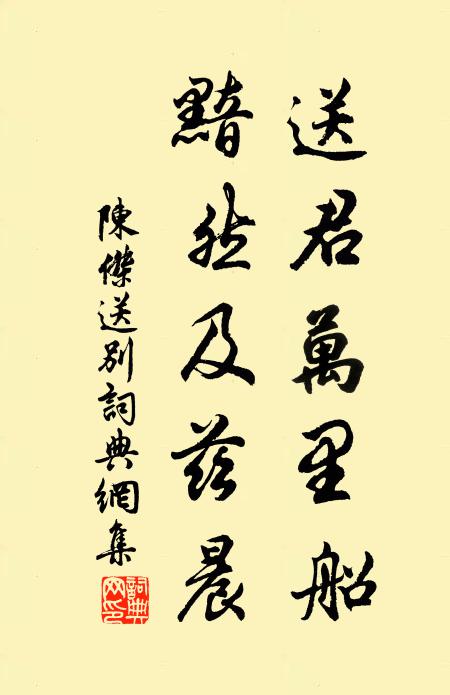 送君萬里船
黯然及茲晨
陳傑送別詞典網集
詞典網印